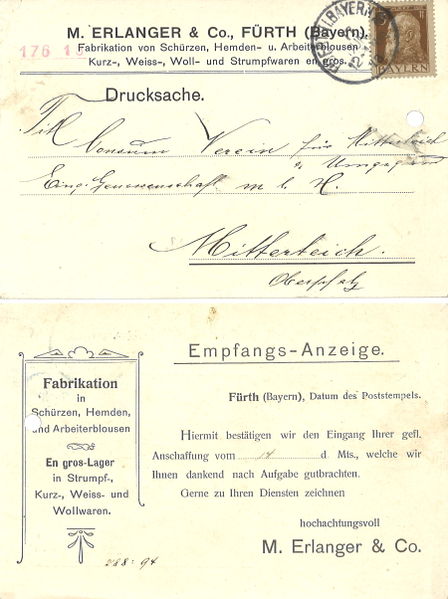 M. ERLANGER & Co., FÜRTH (Bayern).
Fabrikation von Schürzen, Hemden- u. Arbeiterblousen
Kurz-, Weiss-, Woll- und Strumpfwaren en gros.
176 1
BAYERN
Drucksache.
Tit. Consum Verein für Mitterteich
u. Umgegend
Eing. Genossenschaft m. b. H.
Mitterteich.
Oberpfalz
Empfangs-Anzeige.
Fabrikation
in
Schürzen, Hemden,
und Arbeiterblousen
En gros-Lager
in Strumpf-,
Kurz-, Weiss- und
Wollwaren.
Fürth (Bayern), Datum des Poststempels.
Hiermit bestätigen wir den Eingang Ihrer gefl.
Anschaffung vom 14 d Mts., welche wir
Ihnen dankend nach Aufgabe gutbrachten.
Gerne zu Ihren Diensten zeichnen
hochachtungsvoll
M. Erlanger & Co.